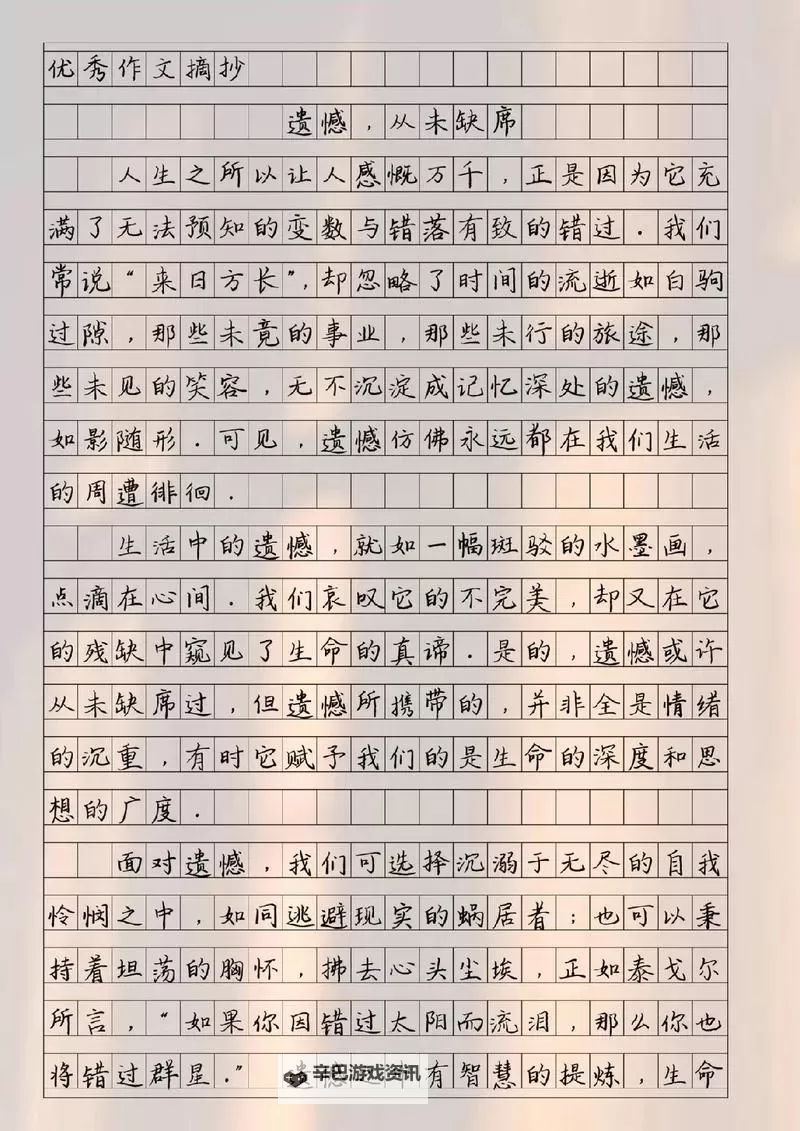 优秀作文摘抄
遗憾，从未缺席
人生之所以让人感慨万千，正是因为它充
满了无法预知的变数与错落有致的错过．我们
常说“来日方长”，却忽略了时间的流逝如白驹
过隙，那些未竟的事业，那些未行的旅途，那
些未见的笑容，无不沉淀成记忆深处的遗憾，
如影随形．可见，遗憾仿佛永远都在我们生活
的周遭徘徊．
生活中的遗憾，就如一幅斑驳的水墨画，
点滴在心间．我们哀叹它的不完美，却又在它
的残缺中窥见了生命的真谛．是的，遗憾或许
从未缺席过，但遗憾所携带的，并非全是情绪
的沉重，有时它赋予我们的是生命的深度和思
想的广度．
面对遗憾，我们可选择沉溺于无尽的自我
怜悯之中，如同逃避现实的蜗居者；也可以秉
持着坦荡的胸怀，拂去心头尘埃，正如泰戈尔
所言，“如果你因错过太阳而流泪，那么你也
将错过群星．”有智慧的提炼，生命
辛巴游戏资讯